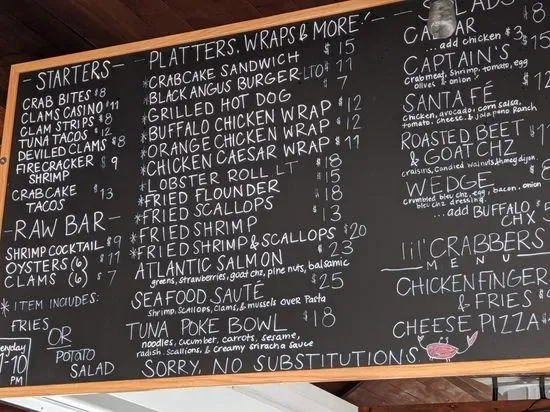 -STARTERS-
CRAB BITES $8
CLAMS CASINO $11
CLAM STRIPS $8
TUNA TACOS $12
DEVILED CLAMS $8
FIRECRACKER $9
SHRIMP
CRABCAKE $13
TACOS
-RAW BAR-
SHRIMP COCKTAIL $9
OYSTERS (6) $11
CLAMS (6) $7
* ITEM INCLUDES:
FRIES
OR
POTATO
SALAD
PM
-PLATTERS, WRAPS & MORE!-
*CRABCAKE SANDWICH $15
*BLACK ANGUS BURGER LTO $11
*GRILLED HOT DOG $7
*BUFFALO CHICKEN WRAP $12
*ORANGE CHICKEN WRAP $12
*CHICKEN CAESAR WRAP $11
*LOBSTER ROLL LT $18
*FRIED FLOUNDER $15
*FRIED SCALLOPS $18
*FRIED SHRIMP $13
*FRIED SHRIMP & SCALLOPS $20
ATLANTIC SALMON $23
greens, strawberries, goat chz, pine nuts, balsamic
SEAFOOD SAUTÉ $25
shrimp, scallops, clams, & mussels over pasta
TUNA POKE BOWL $18
noodles, cucumber, carrots, sesame,
radish, scallions, & creamy sriracha sauce
SORRY, NO SUBSTITUTIONS
SALADS
CAESAR
...add chicken $3
CAPTAIN'S
crabmeat, shrimp, tomato, egg
olives & onion
SANTA FÉ
chicken, avocado, corn salsa,
tomato, cheese, & jalapeno ranch
ROASTED BEET
& GOAT CHZ
craisins, candied walnuts & honey dijon
WEDGE
crumbled bleu chz, egg, bacon, onion
bleu chz dressing.
...add BUFFALO
CHX
lil' CRABBERS
MENU
CHICKEN FINGER
& FRIES
CHEESE PIZZA